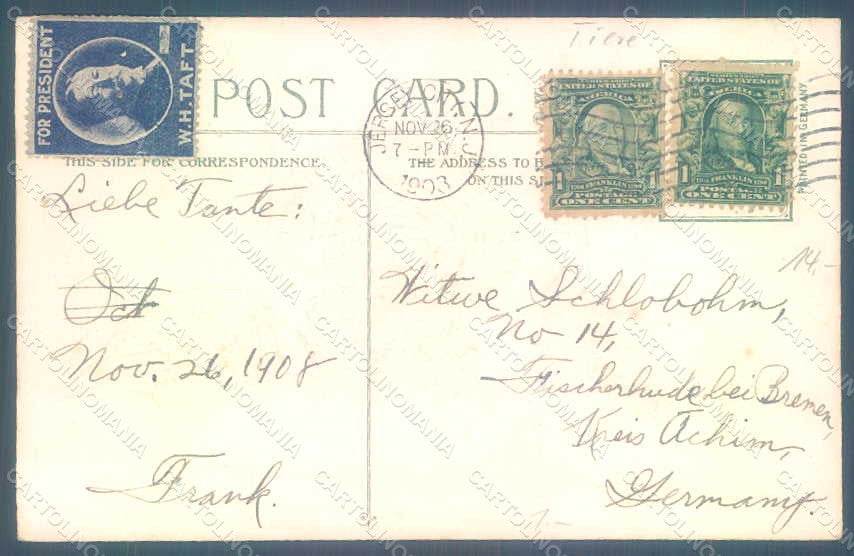 FOR PRESIDENT
W.H. TAFT
Tiere
POST CARD.
JERSEY CITY, N.J.
NOV 26
7-PM
1908
UNITED STATES OF
AMERICA
1 1
FRANKLIN
ONE CENT
UNITED STATES OF
AMERICA
1 1
FRANKLIN
POSTAGE
ONE CENT
PRINTED IN GERMANY
THIS SIDE FOR CORRESPONDENCE.
THE ADDRESS TO B
ON THIS SI
Liebe Tante:
Oct
Nov. 26, 1908
Frank.
14.-
Witwe Schlobohm,
No 14,
Fischerhude bei Bremen,
Kreis Achim,
Germany.
CARTOLINOMANIA